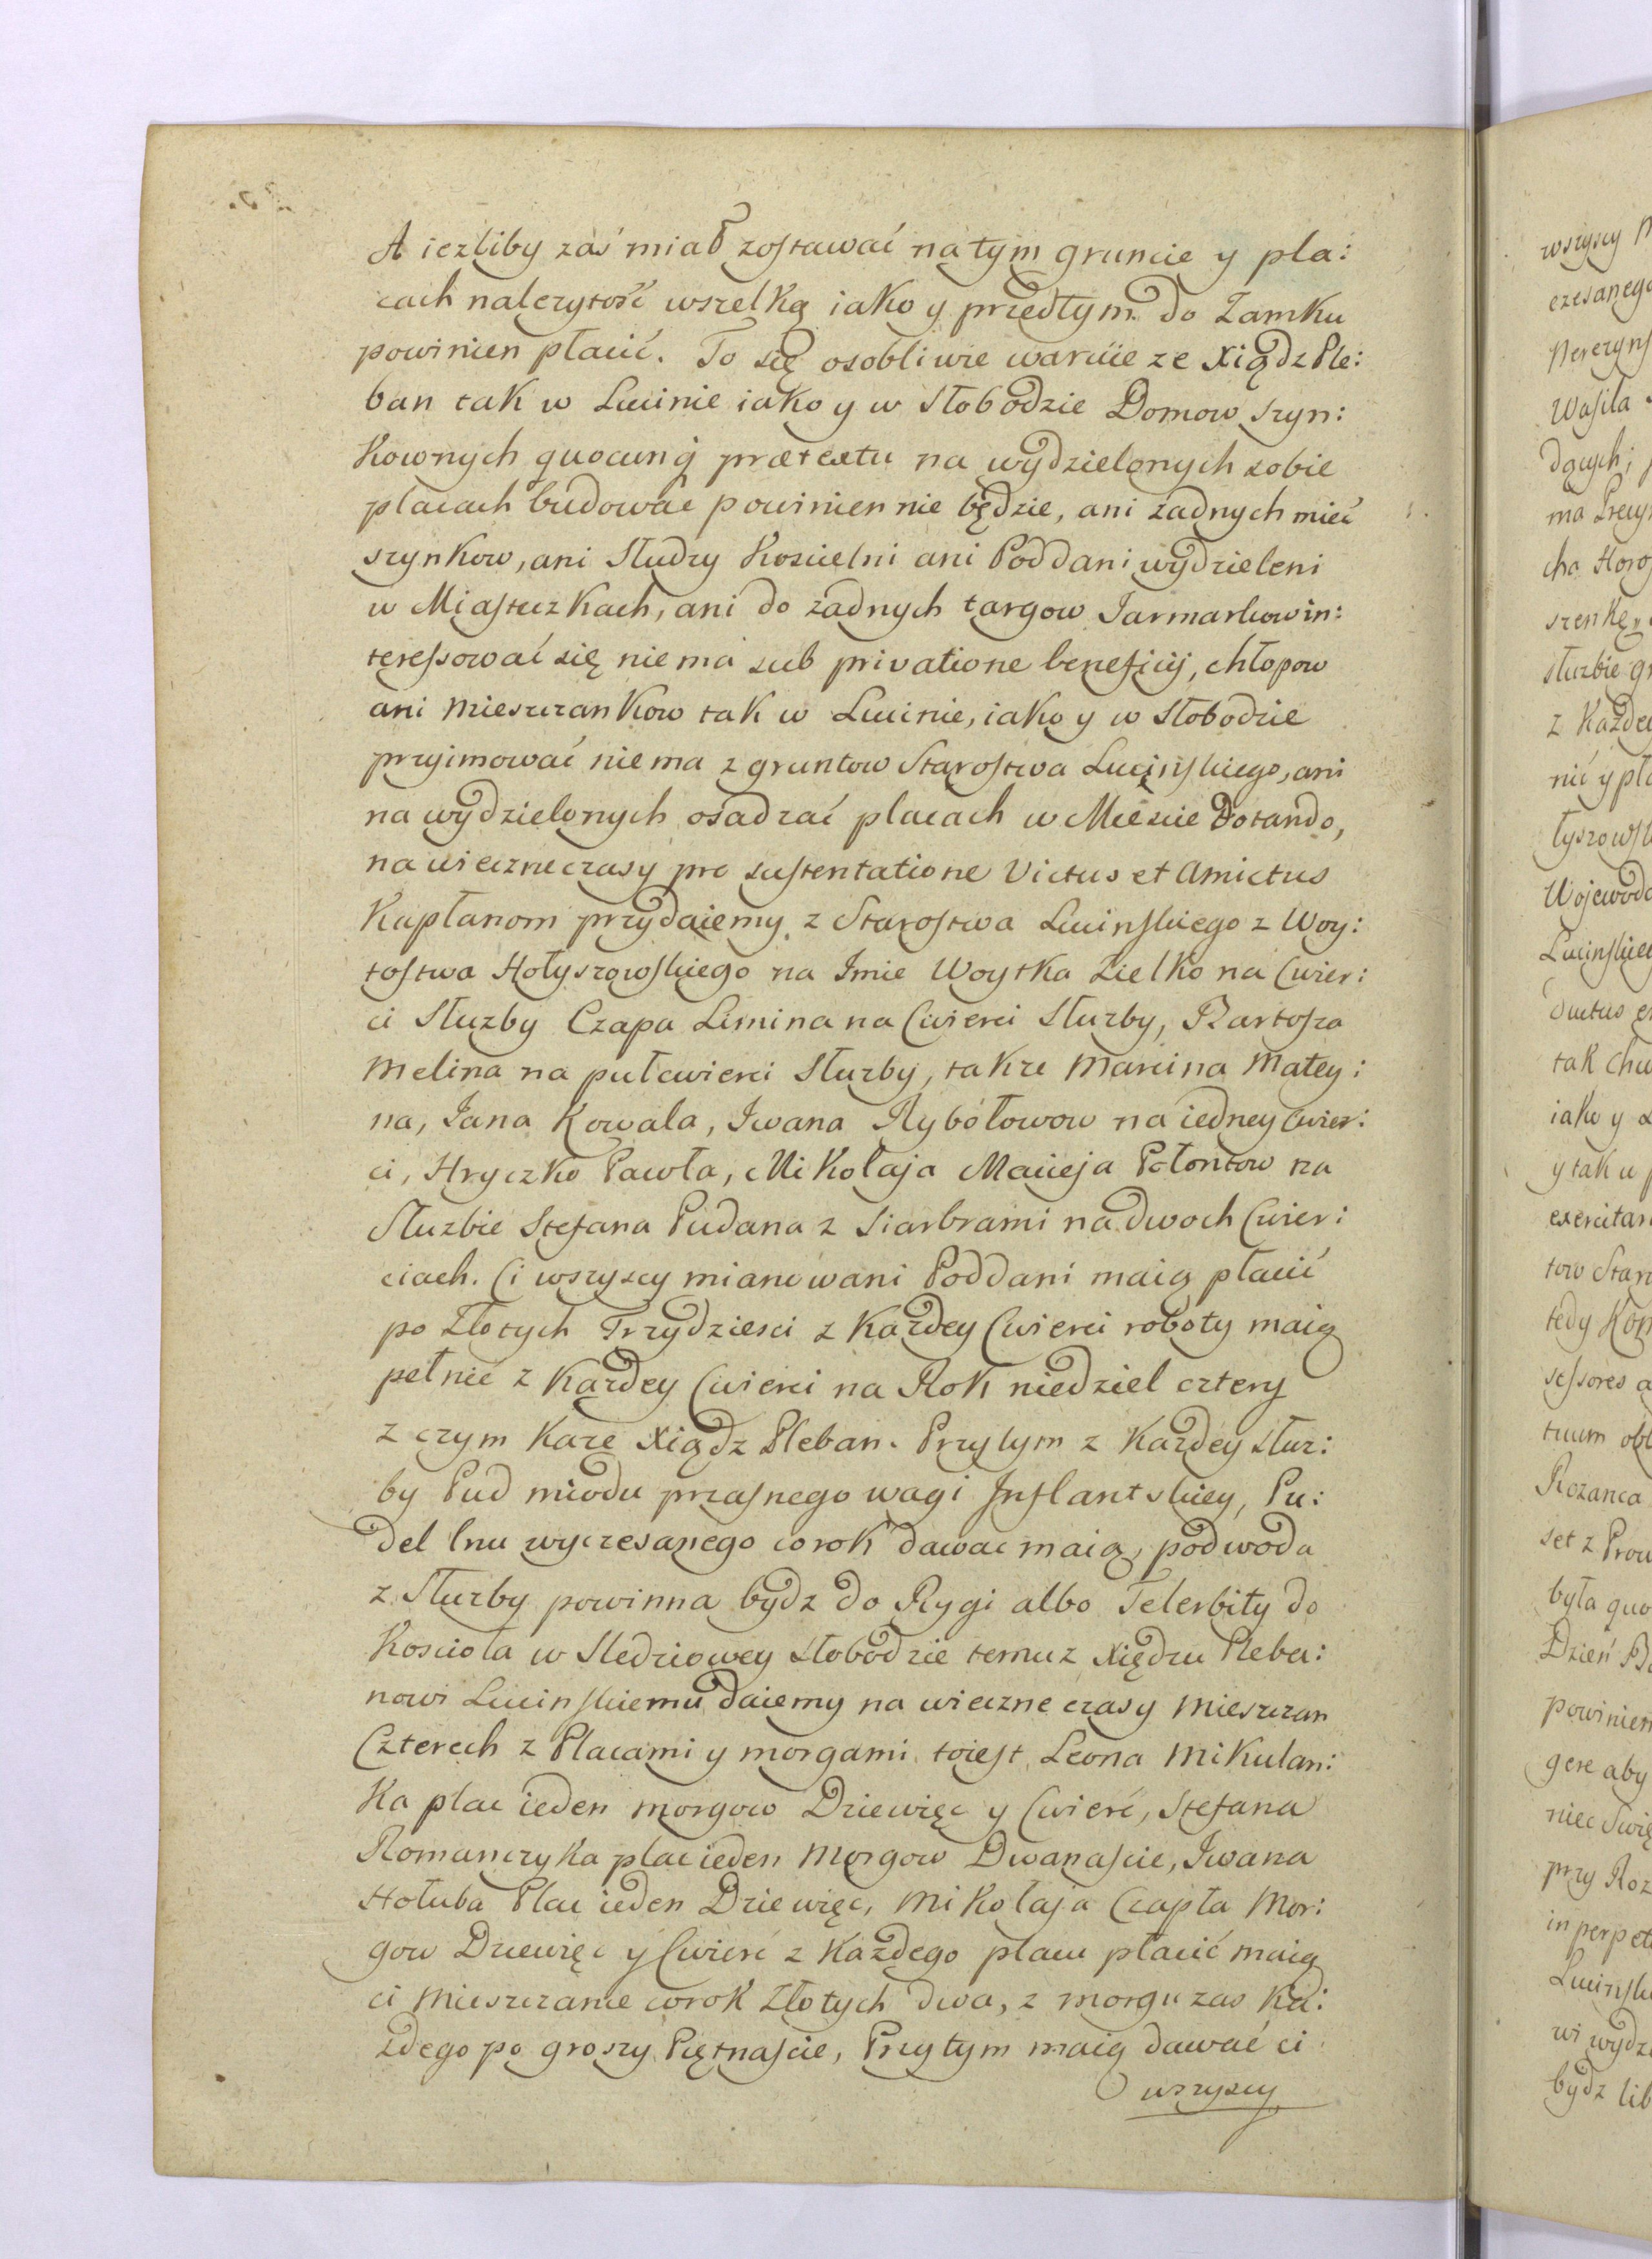 A iezliby zaś miał zostawać na tym gruncie y pla:
cach nalezytość wszelką iako y przedtym do Zamku
powinien płacić. To się osobliwie waruie ze Xiądz Ple:
ban tak w Lucinie iako y w Słobodzie Domow szyn:
kownych quocunq prætextu na wydzielonych sobie
placach budować powinien nie będzie, ani zadnych mieć
szynkow, ani Słudzy Koscielni ani Poddani wydzieleni
w Miasteczkach, ani do zadnych targow Jarmarkow in:
teressować się nie ma sub privatione beneficij, chłopow
ani Mieszczankow tak w Lucinie, iako y w Słobodzie
przyimować nie ma z gruntow Starostwa Lucinskiego, ani
na wydzielonych osadzać placach w Miescie Dotando,
na wieczne czasy pro sustentatione Victus et Amictus
Kapłanom przydaiemy z Starostwa Lucinskiego z Woy:
tostwa Hołyszowskiego na Imie Woytka Zielko na Cwier:
ci Słuzby Czapa Limina na Cwierci Słuzby, Bartosza
Melina na puł cwierci Słuzby, takze Marcina Matey:
na, Jana Kowala, Iwana Rybołowow na iedney Cwier:
ci, Hryczko Pawła, Mikołaja Macieja Połontow na
Słuzbie Stefana Pudana z Siarbrami na dwoch Cwier:
ciach. Ci wszyscy mianowani Poddani maią płacić
po Złotych Trzydziesci z Kazdey Cwierci roboty maią
pełnić z Kazdey Cwierci na Rok niedziel cztery
z czym Kaze Xiądz Pleban. Przytym z Kazdey słuz:
by Pud miodu przasnego wagi Inflantskiey, Pu:
del lnu wyczesanego corok dawac maią, podwoda
z Słuzby powinna bydz do Rygi albo Telerbity do
Kosciola w Sledziowey Słobodzie temuz Xiędzu Pleba:
nowi Lucinskiemu daiemy na wieczne czasy Mieszczan
Czterech z Placami y morgami toiest Leona Mikulan:
ka plac ieden morgow Dziewięc y Cwierć, Stefana
Romanczyka plac ieden Morgow Dwanascie, Iwana
Hołuba Plac ieden Dziewięc, Mikołaja Czapła Mor:
gow Dziewięc y Cwierć z Każdego placu płacić maią
ci Mieszczanie corok Złotych dwa, z morgu zas Ka:
żdego po groszy Piętnascie, Przytym maią dawać ci
wszyscy
wszyscy
czesanego
Wasila
dących;
słuzbie
z Każdey
nić y pła
Wojewod
Lucinskie
iako y
y tak u
exercitan
tow Star
tedy
sessores
Rozanca
set z
była quo
Dzień
powinien
gere aby
przy Roz
in perpet
Lucinsk
wi wydz
bydz lib